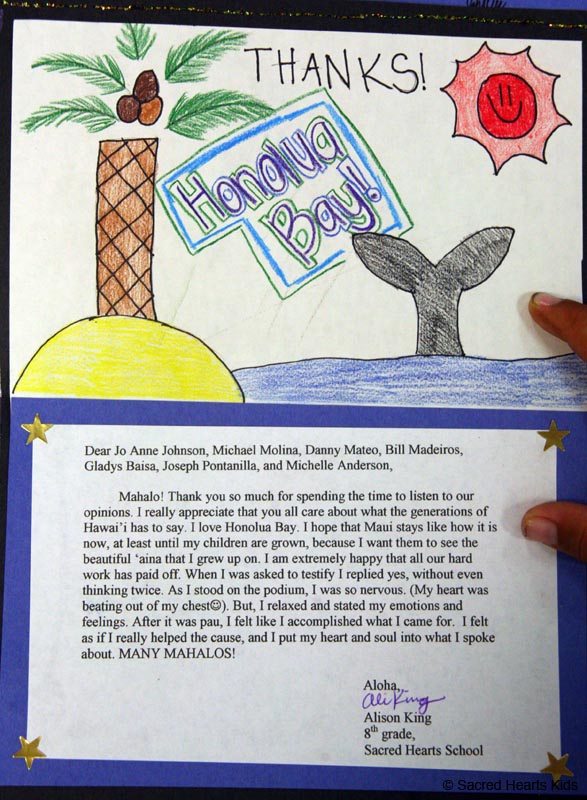 THANKS!
Honolua
Bay!
Dear Jo Anne Johnson, Michael Molina, Danny Mateo, Bill Madeiros,
Gladys Baisa, Joseph Pontanilla, and Michelle Anderson,
Mahalo! Thank you so much for spending the time to listen to our
opinions. I really appreciate that you all care about what the generations of
Hawai'i has to say. I love Honolua Bay. I hope that Maui stays like how it is
now, at least until my children are grown, because I want them to see the
beautiful 'aina that I grew up on. I am extremely happy that all our hard
work has paid off. When I was asked to testify I replied yes, without even
thinking twice. As I stood on the podium, I was so nervous. (My heart was
beating out of my chest☺). But, I relaxed and stated my emotions and
feelings. After it was pau, I felt like I accomplished what I came for. I felt
as if I really helped the cause, and I put my heart and soul into what I spoke
about. MANY MAHALOS!
Aloha,
Ali King
Alison King
8th grade,
Sacred Hearts School
© Sacred Hearts Kids